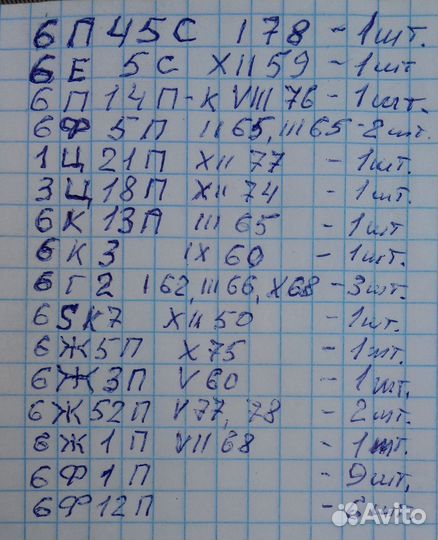 6П45С I 78 - 1шт.
6Е 5С XII 59 - 1шт
6П14П-К VIII 76 - 1шт.
6Ф 5П II 65, III 65 - 2шт.
1Ц21П XII 77 - 1шт.
3Ц18П XII 74 - 1шт.
6К13П III 65 - 1шт.
6К3 IX 60 - 1шт.
6Г2 I 62, III 66, X 68 - 3шт.
6SK7 XII 50 - 1шт.
6Ж5П X 75 - 1шт.
6Ж3П V 60 - 1шт.
6Ж52П V 77, 78 - 2шт.
6Ж1П VII 68 - 1шт.
6Ф1П - 9шт.
6Ф12П - шт.
Avito